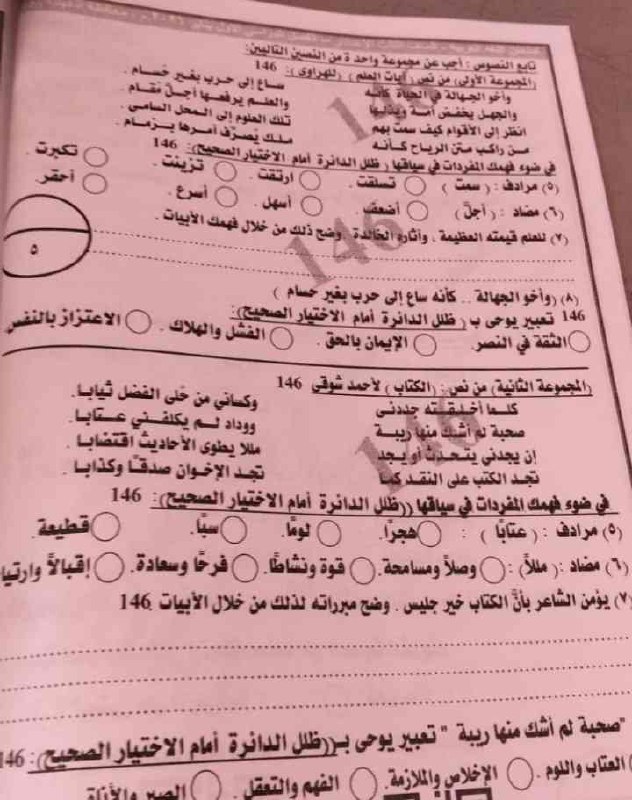 تابع النصوص : أجب عن مجموعة واحدة من النصين التاليين:
(المجموعة الأولى) من نص (آيات العلم) (للهراوى) : 146
وأخو الجهالة في الحياة كأنه ساع إلى حرب بغير حسام .
والجهل يخفض أمة ويذلها والعلم يرفعها أجل مقام .
انظر إلى الأقوام كيف سمت بهم تلك العلوم إلى المحل السامى .
من راكب متن الرياح كأنه ملك يصرف أمرها بزمام .
في ضوء فهمك المفردات في سياقها ( ظلل الدائرة أمام الاختيار الصحيح): 146
(٥) مرادف : ( سمت ) تسلقت . ارتقت . تزينت . تكبرت .
(٦) مضاد : ( أجلّ ) أضعف . أسهل . أسرع . أحقر .
(٧) للعلم قيمته العظيمة . وآثاره الخالدة . وضح ذلك من خلال فهمك الأبيات .
٥
(٨) (وأخو الجهالة .. كأنه ساع إلى حرب بغير حسام )
146 تعبير يوحى ب ( ظلل الدائرة أمام الاختيار الصحيح):
الثقة في النصر . الإيمان بالحق . الفشل والهلاك . الاعتزاز بالنفس
(المجموعة الثانية) من نص : (الكتاب) لأحمد شوقي 146
كلما أخلقته جددنى وكسانى من حلى الفضل ثيابا .
صحبة لم أشك منها ريبة ووداد لم يكلفني عتابا .
إن يجدنى يتحدث أو يجد مللا يطوى الأحاديث اقتضابا .
تجد الكتب على النقد كما تجد الإخوان صدقا وكذابا .
في ضوء فهمك المفردات في سياقها ((ظلل الدائرة أمام الاختيار الصحيح): 146
(٥) مرادف : ( عتابًا ) : هجرًا. لومًا. سبًا. قطيعة.
(٦) مضاد : ( مللاً) : وصلاً ومسامحة. قوة ونشاطًا. فرحًا وسعادة. إقبالاً
٧) يؤمن الشاعر بأنَّ الكتاب خير جليس . وضح مبرراته لذلك من خلال الأبيات 146
"صحبة لم أشك منها ريبة " تعبير يوحى بـ((ظلل الدائرة أمام الاختيار الصحيح): 146
العتاب واللوم . الإخلاص والملازمة. الفهم والتعقل . الصبر والأناة
146
146
146